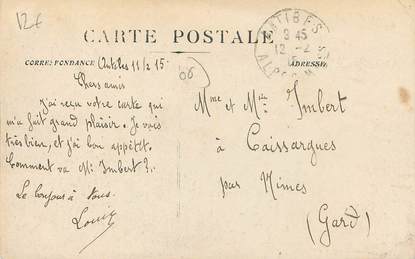 12€
CARTE POSTALE
ANTIBES
9 45
12 -2
CORRESPONDANCE
Antibes 11/2 15
Chers amis
J'ai reçu votre carte qui
m'a fait grand plaisir. Je vais
très bien, et j'ai bon appétit.
Comment va Mr Imbert ?
Le bonjour à tous.
Louis
ADRESSE
Mme et Mr Imbert
à Caissargues
par Nimes
(Gard)